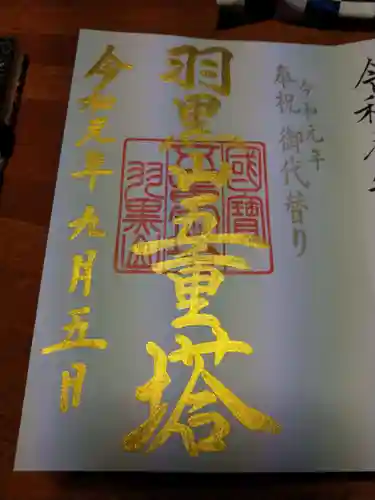 奉祝 令和元年
御代替り
羽黒山五重塔
國寶
羽黒山
令和元年九月五日